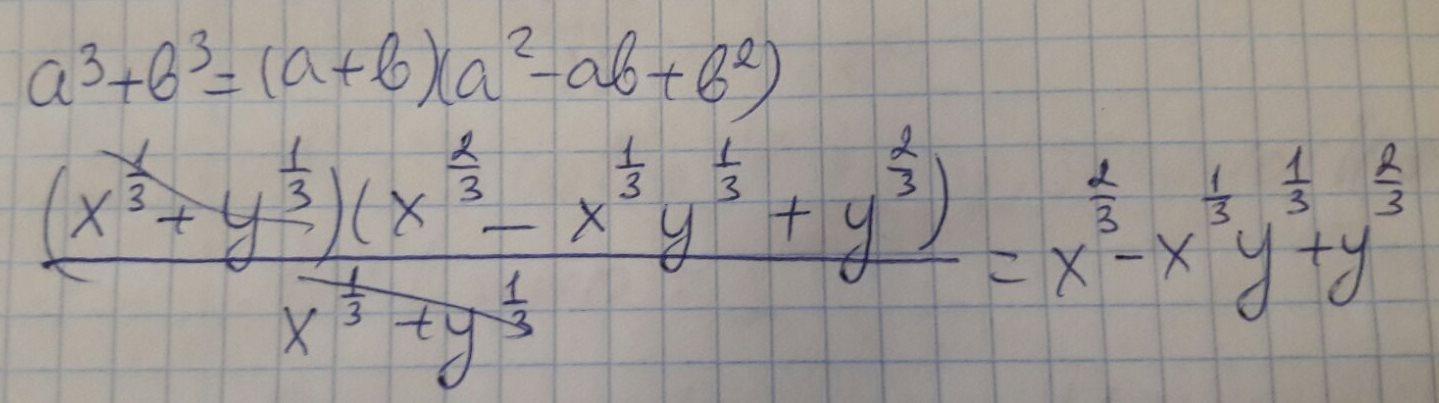 a³+b³=(a+b)(a²-ab+b²)
(x^{1/3}+y^{1/3})(x^{2/3}-x^{1/3}y^{1/3}+y^{2/3})/(x^{1/3}+y^{1/3})=x^{2/3}-x^{1/3}y^{1/3}+y^{2/3}